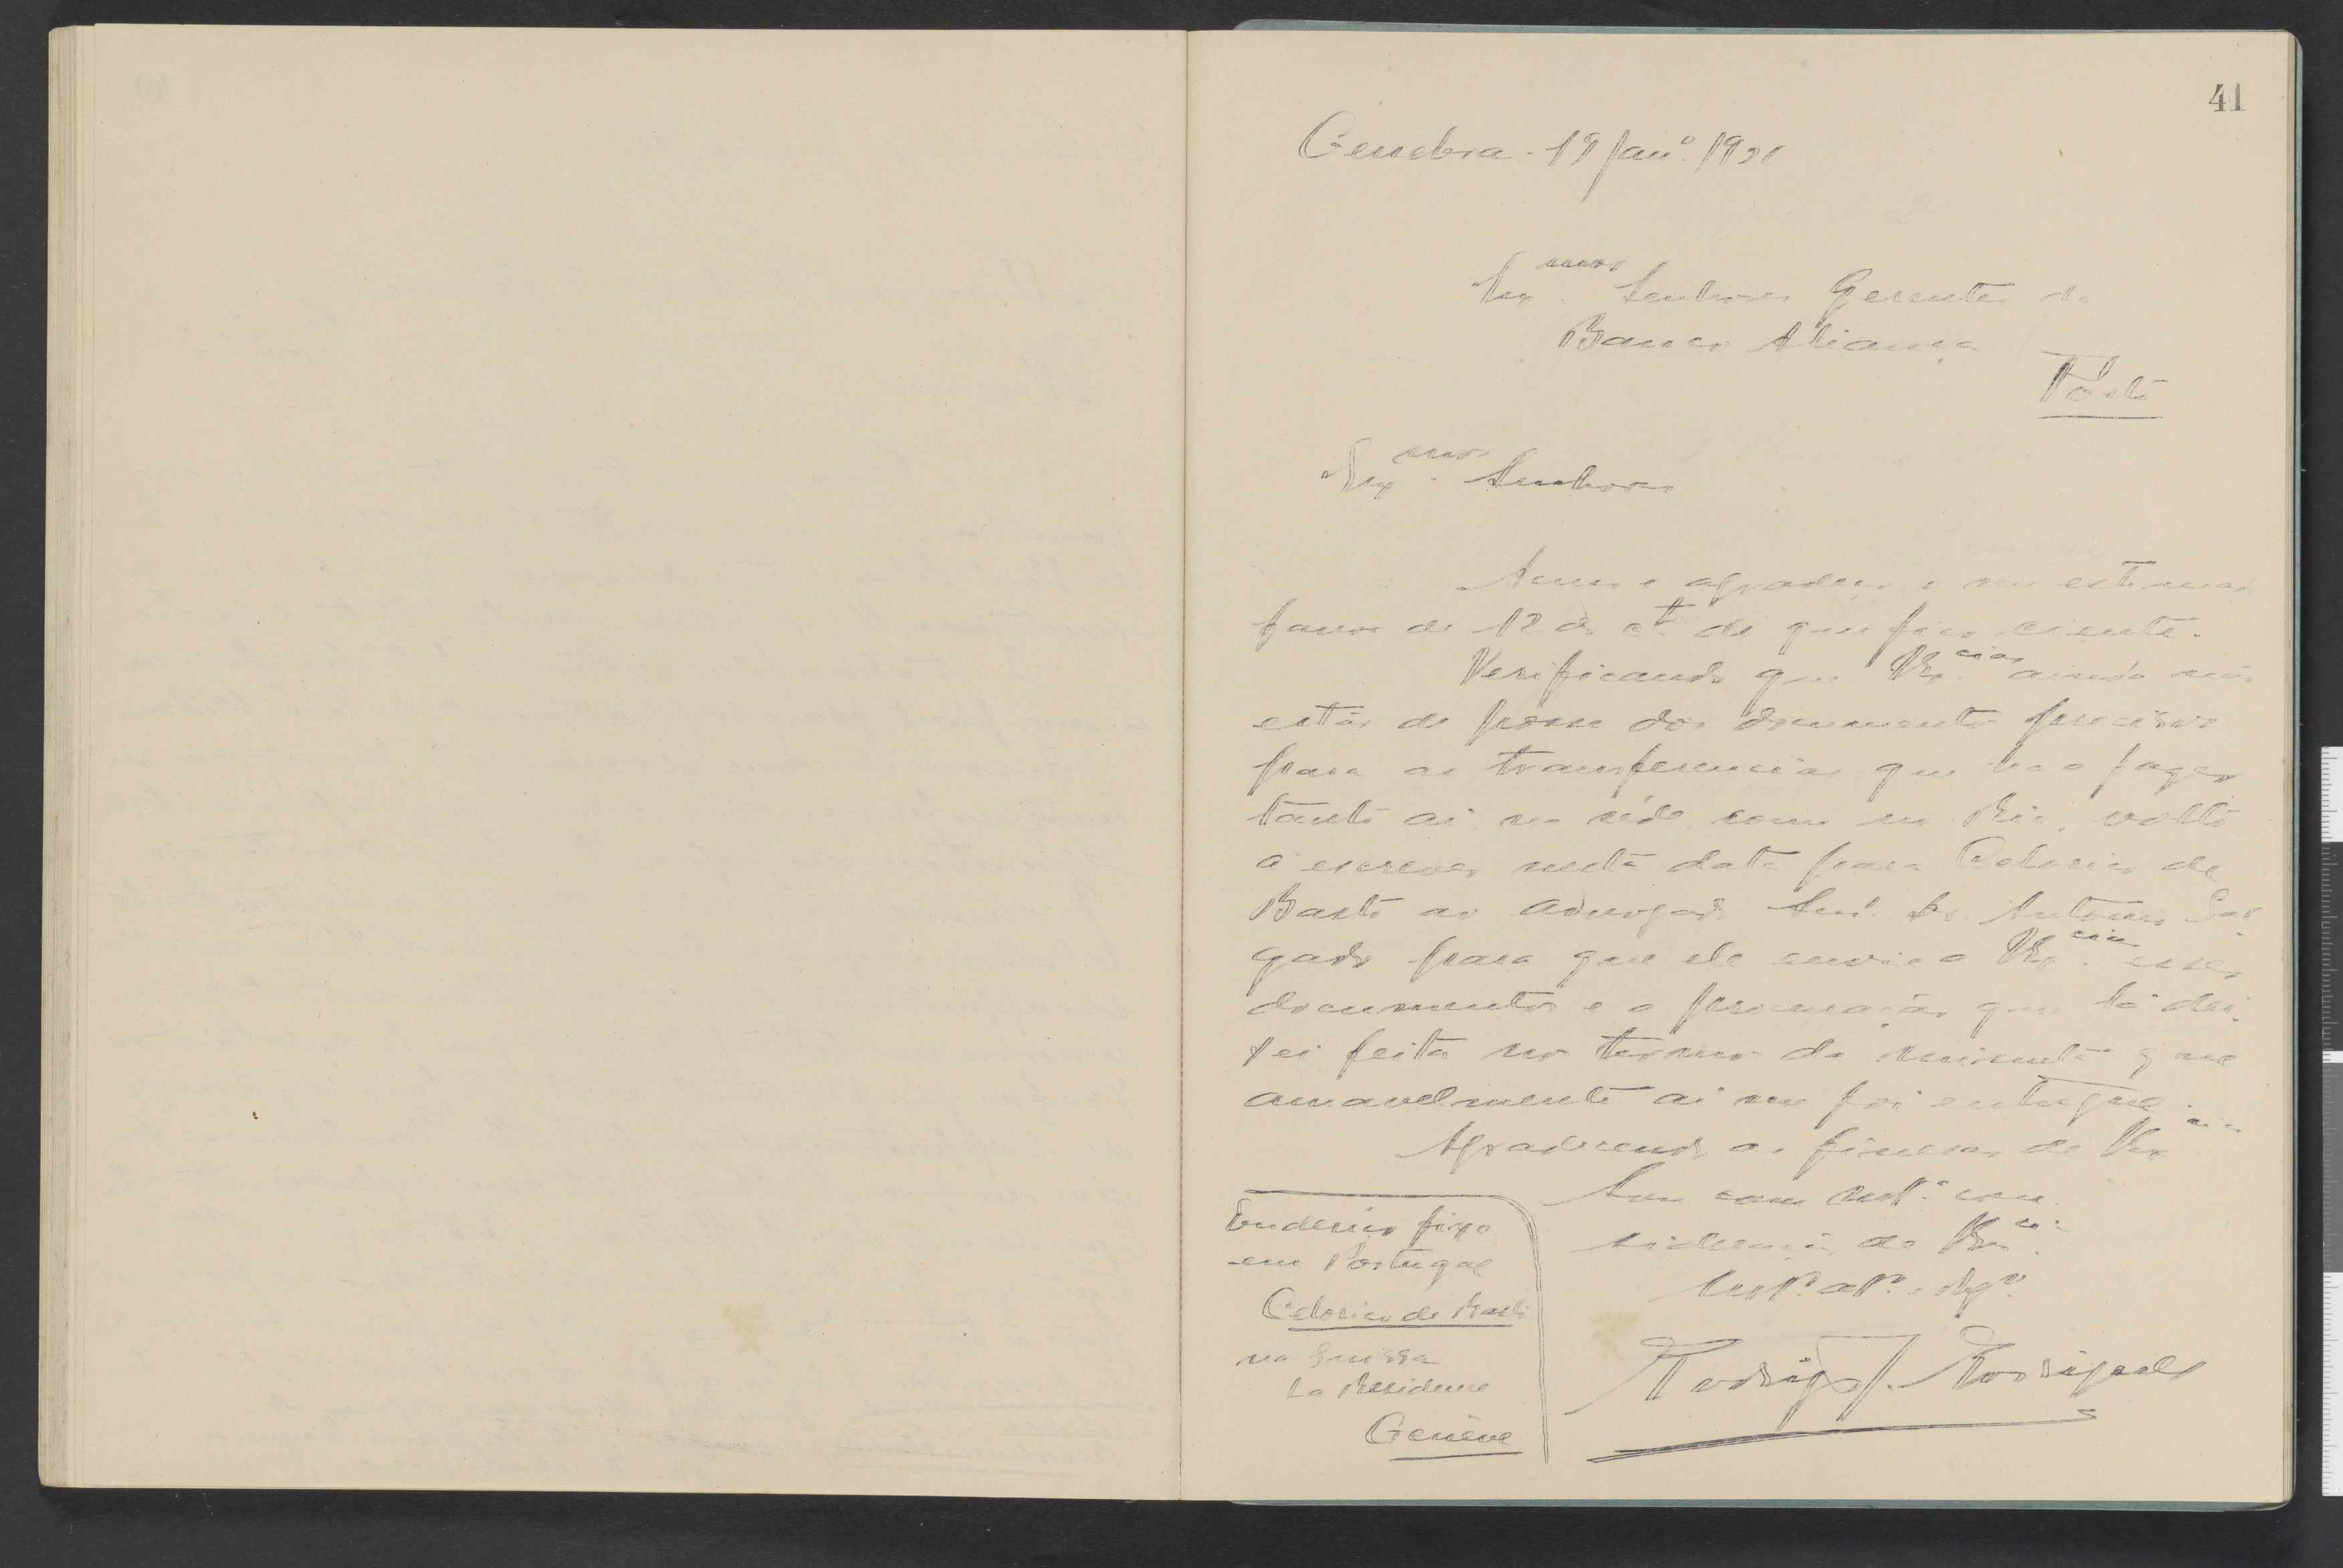 41
Genebra - 19 Jan.º 1921
Ex.mos Senhores Gerentes do
Banco Aliança
Pôrto
Ex.mos Senhores
Acuso e agradeço o seu estimado
favor de 12 do c.te de que fico ciente.
Verificando que V.Ex.cias ainda não
estão de posse dos documentos precisos
para as transferencias que ha a fazer
tanto ai na séde como no Rio, volto
a escrever nesta data para Celorico de
Basto ao advogado Snr. Dr. Antonio Sal-
gado para que ele envie a V.Ex.cias esses
documentos e a procuração que lá dei-
xei feita nos termos da minuta que
amavelmente ai me foi entregue.
Agradecendo as finezas de V.Ex.cias
Sou com mt.ª con-
sideração de V.Ex.cias
Mt.º at.º e obg.º
Rodrigo J. Rodrigues
Endereço fixo
em Portugal
Celorico de Basto
na Suissa
La Residence
Genève